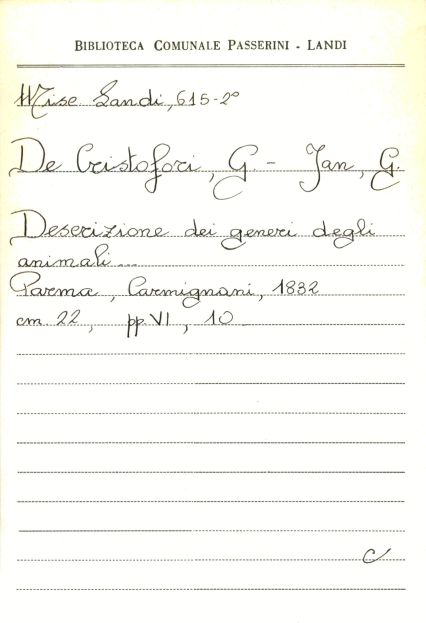 BIBLIOTECA COMUNALE PASSERINI - LANDI
Misc. Landi, 615-2º
De Cristofori, G. - Jan, G.
Descrizione dei generi degli
animali...
Parma, Carmignani, 1832
cm. 22, pp. VI, 10
C